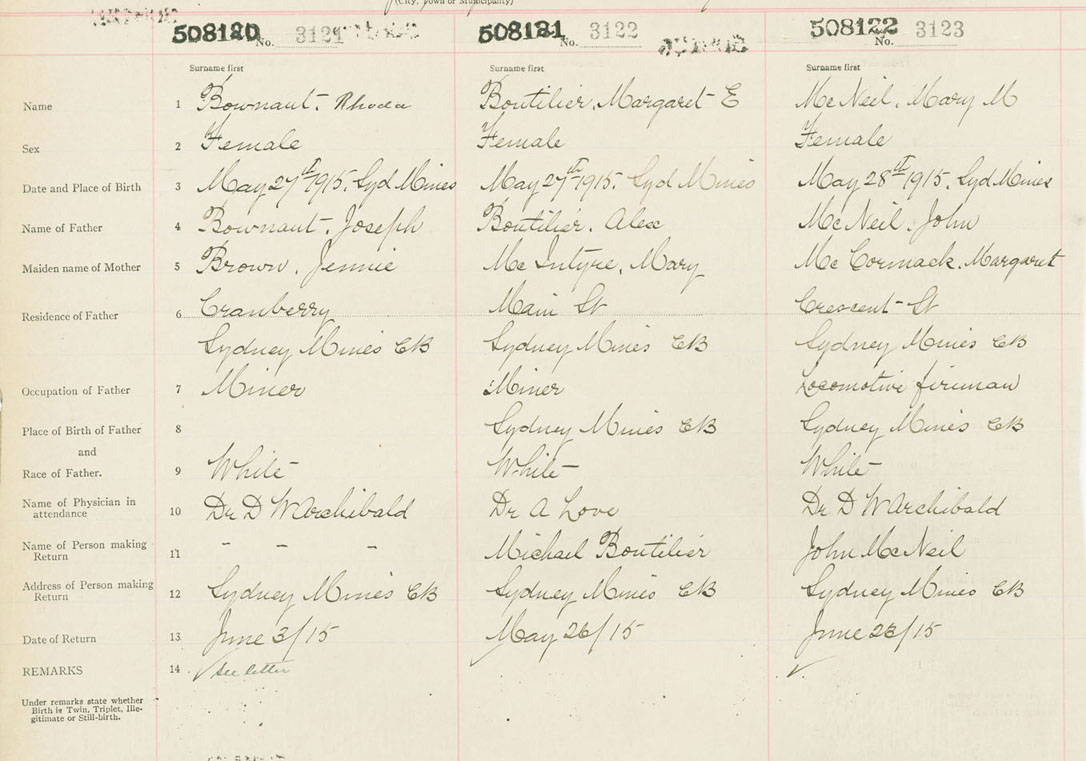 (City, Town or Municipality)
508120 No. 3121 508121 No. 3122 508122 No. 3123
Surname first Surname first Surname first
Name 1 Bownaut. Rhoda Boutilier, Margaret E McNeil, Mary M
Sex 2 Female Female Female
Date and Place of Birth 3 May 27th 1915. Syd Mines May 27th 1915. Syd Mines May 28th 1915. Syd Mines
Name of Father 4 Bownaut. Joseph Boutilier. Alex McNeil. John
Maiden name of Mother 5 Brown. Jennie McIntyre, Mary McCormack. Margaret
Residence of Father 6 Cranberry Main St Crescent St
Sydney Mines CB Sydney Mines CB Sydney Mines CB
Occupation of Father 7 Miner Miner Locomotive fireman
Place of Birth of Father 8 Sydney Mines CB Sydney Mines CB
and
Race of Father. 9 White White White
Name of Physician in
attendance 10 Dr D W Archibald Dr A Love Dr D W Archibald
Name of Person making
Return 11 - - - Michael Boutilier John McNeil
Address of Person making
Return 12 Sydney Mines CB Sydney Mines CB Sydney Mines CB
Date of Return 13 June 3/15 May 26/15 June 23/15
REMARKS 14 see letter
Under remarks state whether
Birth is Twin, Triplet, Ille-
gitimate or Still-birth.